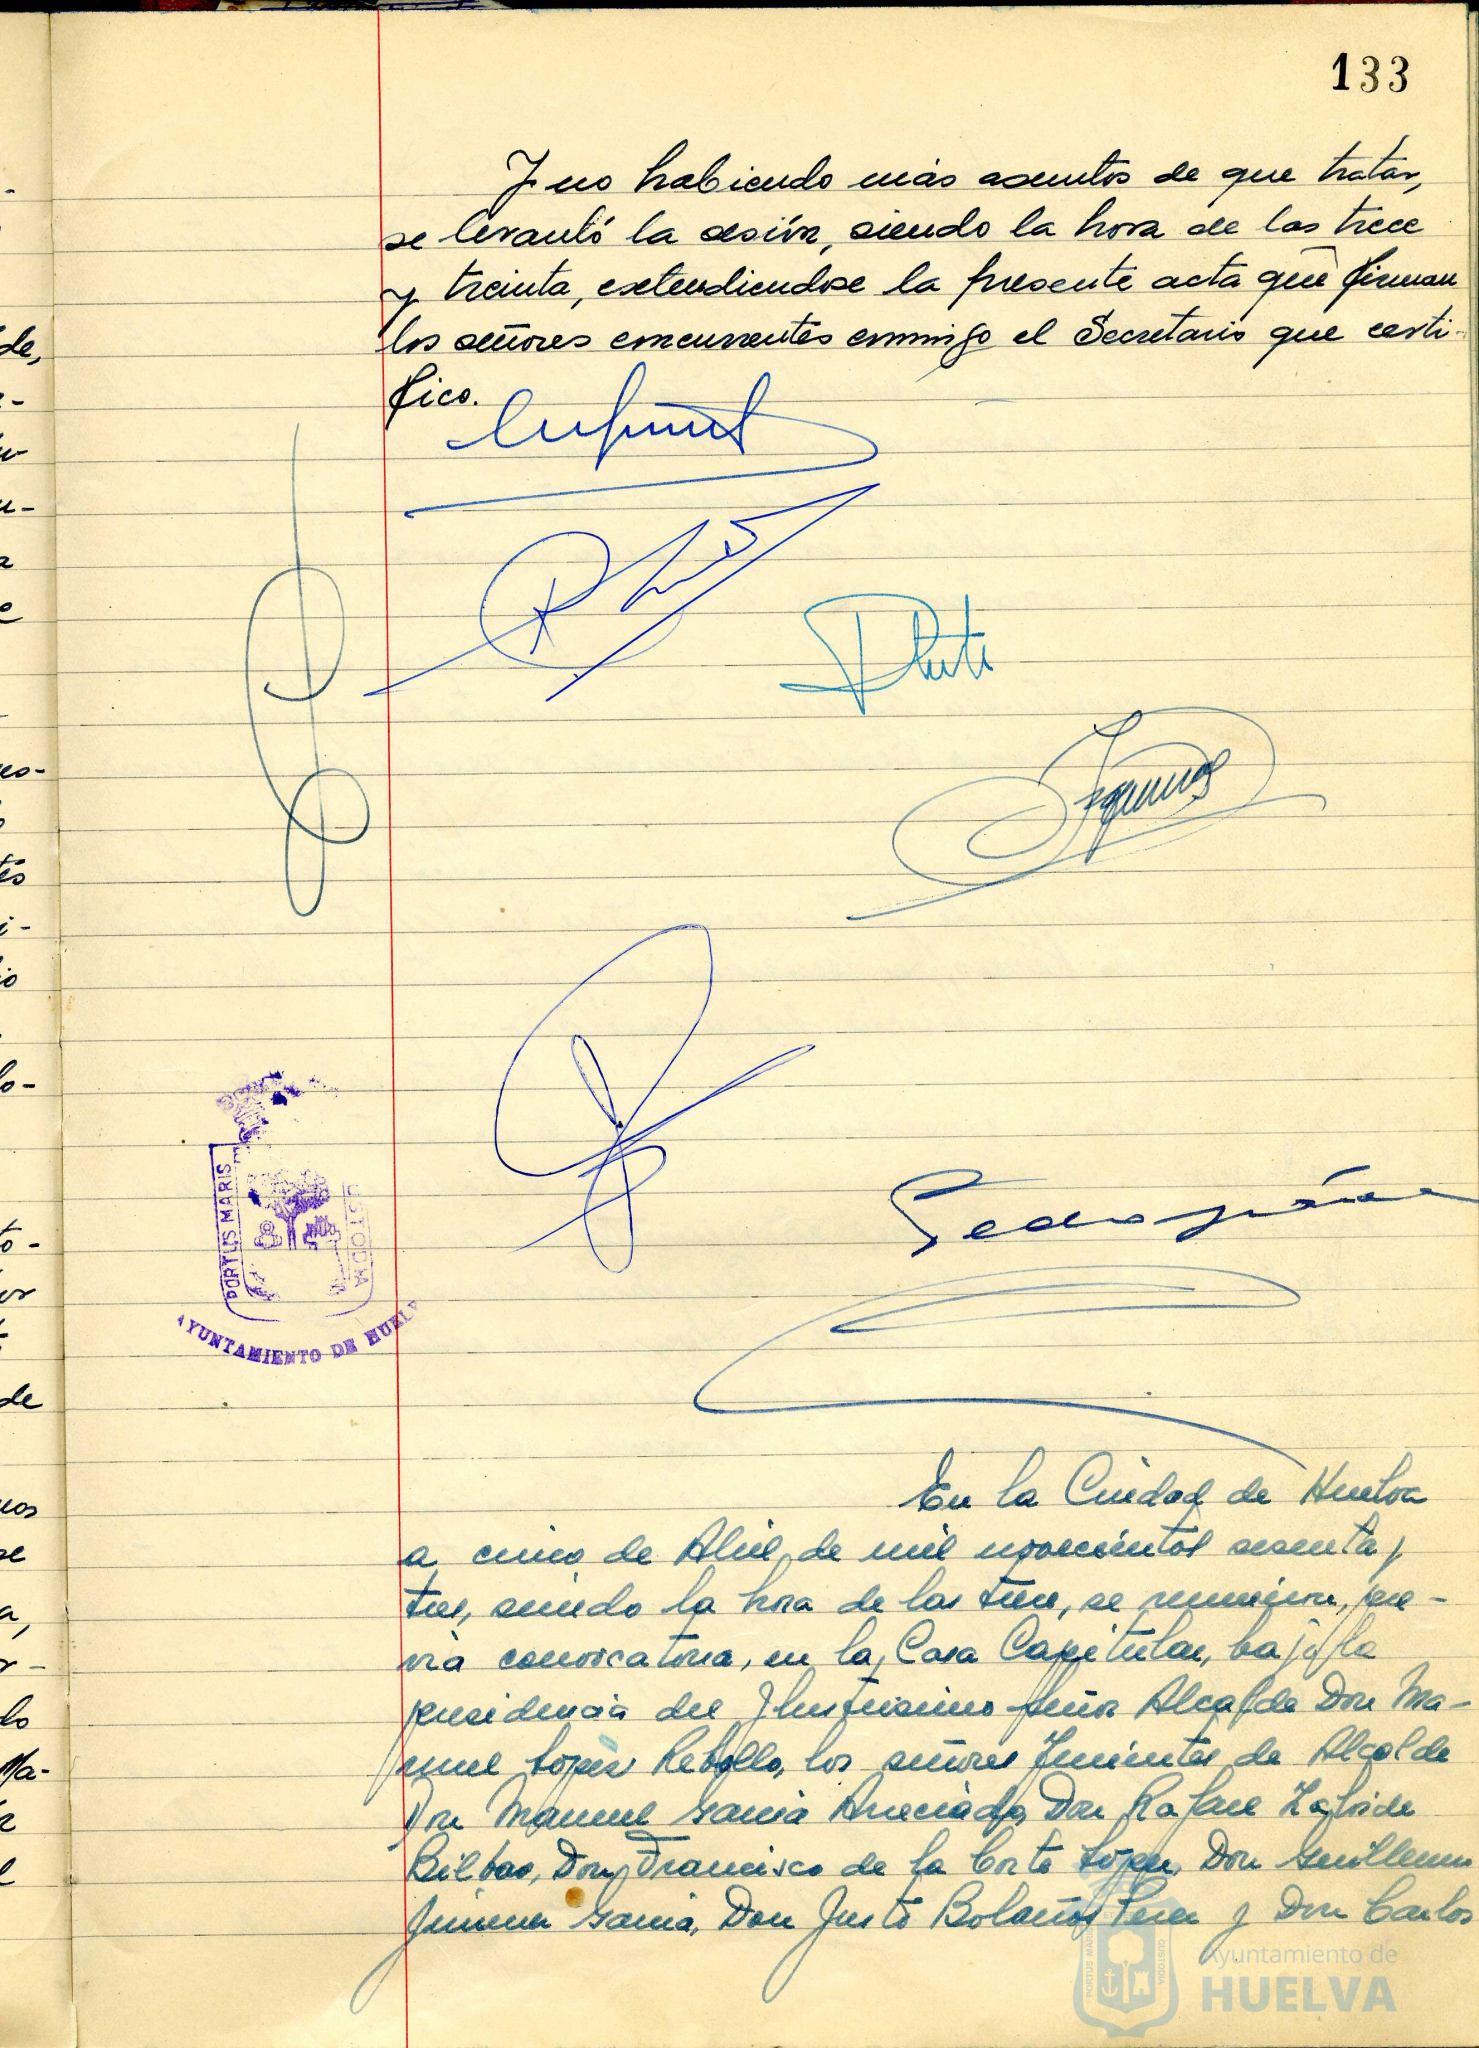 133
Y no habiendo más asuntos de que tratar,
se levantó la sesión, siendo la hora de las trece
y treinta, extendiendose la presente acta que firman
los señores concurrentes conmigo el Secretario que certi-
fico.
PORTUS MARIS
CUSTODIA
AYUNTAMIENTO DE HUELVA
En la Ciudad de Huelva
a cinco de Abril de mil novecientos sesenta y
tres, siendo la hora de las trece, se reunieron, pre-
via convocatoria, en la Casa Capitular, bajo la
presidencia del Ilustrisimo Señor Alcalde Don Ma-
nuel López Rebollo, los señores Tenientes de Alcalde
Don Manuel Garcia Don Rafael
Bilbao, Don Francisco de la Corte López, Don Guillermo
Jimenez Garcia, Don Justo Bolaños Perez y Don Carlos
PORTUS MARIS CUSTODIA
Ayuntamiento de
HUELVA